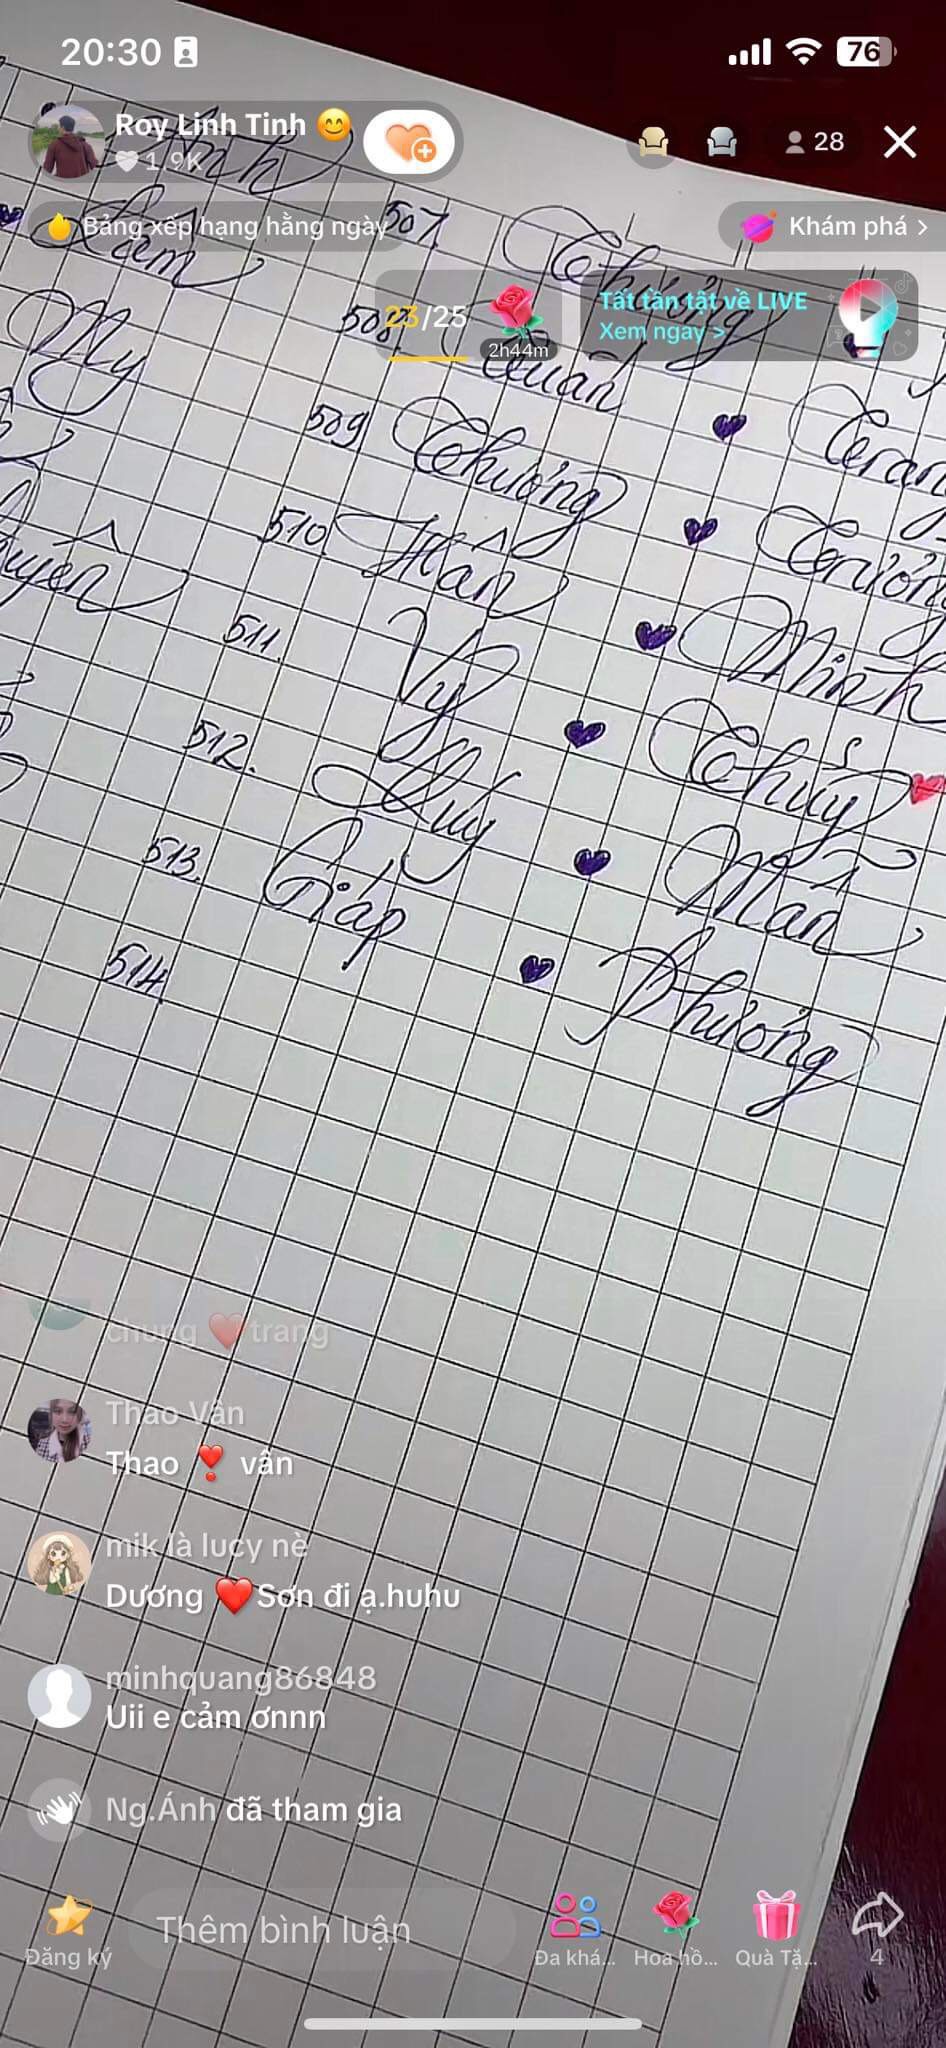 20:30 76
Roy Linh Tinh 😊
1.9K
28
Bảng xếp hạng hằng ngày
Khám phá >
23/25
2h44m
Tất tần tật về LIVE
Xem ngay >
Lâm
My
507.
508.
Quân
509 Chương ♥ Trang
510. Hân ♥ Trường
511. Vy ♥ Minh
512. Quý ♥ Thủy
513. Giáp ♥ Mẫn
514. ♥ Phương
chung ❤️trang
Thao Vân
Thao ❣️ vân
mik là lucy nè
Dương ❤️Sơn đi ạ.huhu
minhquang86848
Uii e cảm ơnnn
Ng.Ánh đã tham gia
Thêm bình luận
Đăng ký
Đa khá...
Hoa hồ...
Quà Tặ...
4